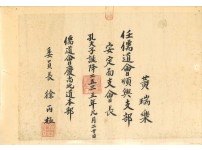 黃瑞樂
任儒道會順興支部
安定面支會長
孔夫子誕降二五二三年元月二十日
儒道會慶尚北道本部
委員長 徐丙